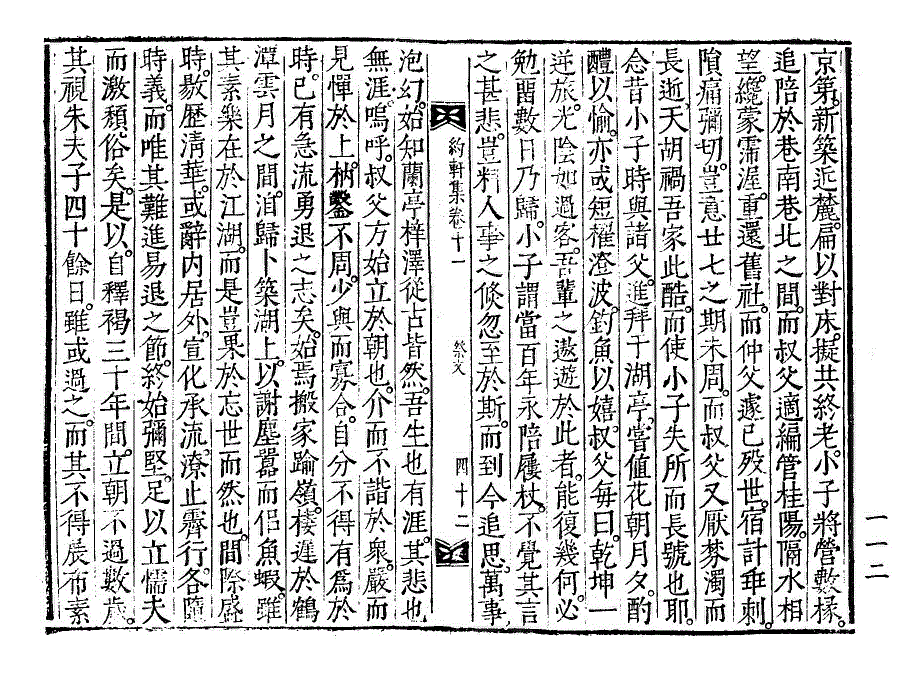 京第。新築近麓。扁以對床。擬共終老。小子將營數椽。
追陪於巷南巷北之間。而叔父適編管桂陽。隔水相
望。纔蒙霈渥。重還舊社。而仲父遽已歿世。宿計乖剌。
隕痛彌切。豈意廿七之期未周。而叔父又厭棼濁而
長逝。天胡禍吾家此酷。而使小子失所而長號也耶。
念昔小子時與諸父。進拜于湖亭。嘗値花朝月夕。酌
醴以愉。亦或短櫂澄波。釣魚以嬉。叔父每曰。乾坤一
逆旅。光陰如過客。吾輩之遨遊於此者。能復幾何。必
勉留數日乃歸。小子謂當百年永陪屨杖。不覺其言
之甚悲。豈料人事之倏忽至於斯。而到今追思。萬事
約軒集卷十一 祭文 四十二
泡幻。始知蘭亭梓澤從古皆然。吾生也有涯。其悲也
無涯。嗚呼。叔父方始立於朝也。介而不諧於衆。嚴而
見憚於上。枘鑿不周。少與而寡合。自分不得有爲於
時。已有急流勇退之志矣。始焉搬家踰嶺。棲遲於鶴
潭雲月之間。洎歸卜築湖上。以謝塵囂而侶魚蝦。雖
其素樂在於江湖。而是豈果於忘世而然也。間際盛
時。敭歷淸華。或辭內居外。宣化承流。潦止霽行。各隨
時義。而唯其難進易退之節。終始彌堅。足以立懦夫
而激頹俗矣。是以。自釋褐三十年間。立朝不過數歲。
其視朱夫子四十餘日。雖或過之。而其不得展布素
一一二